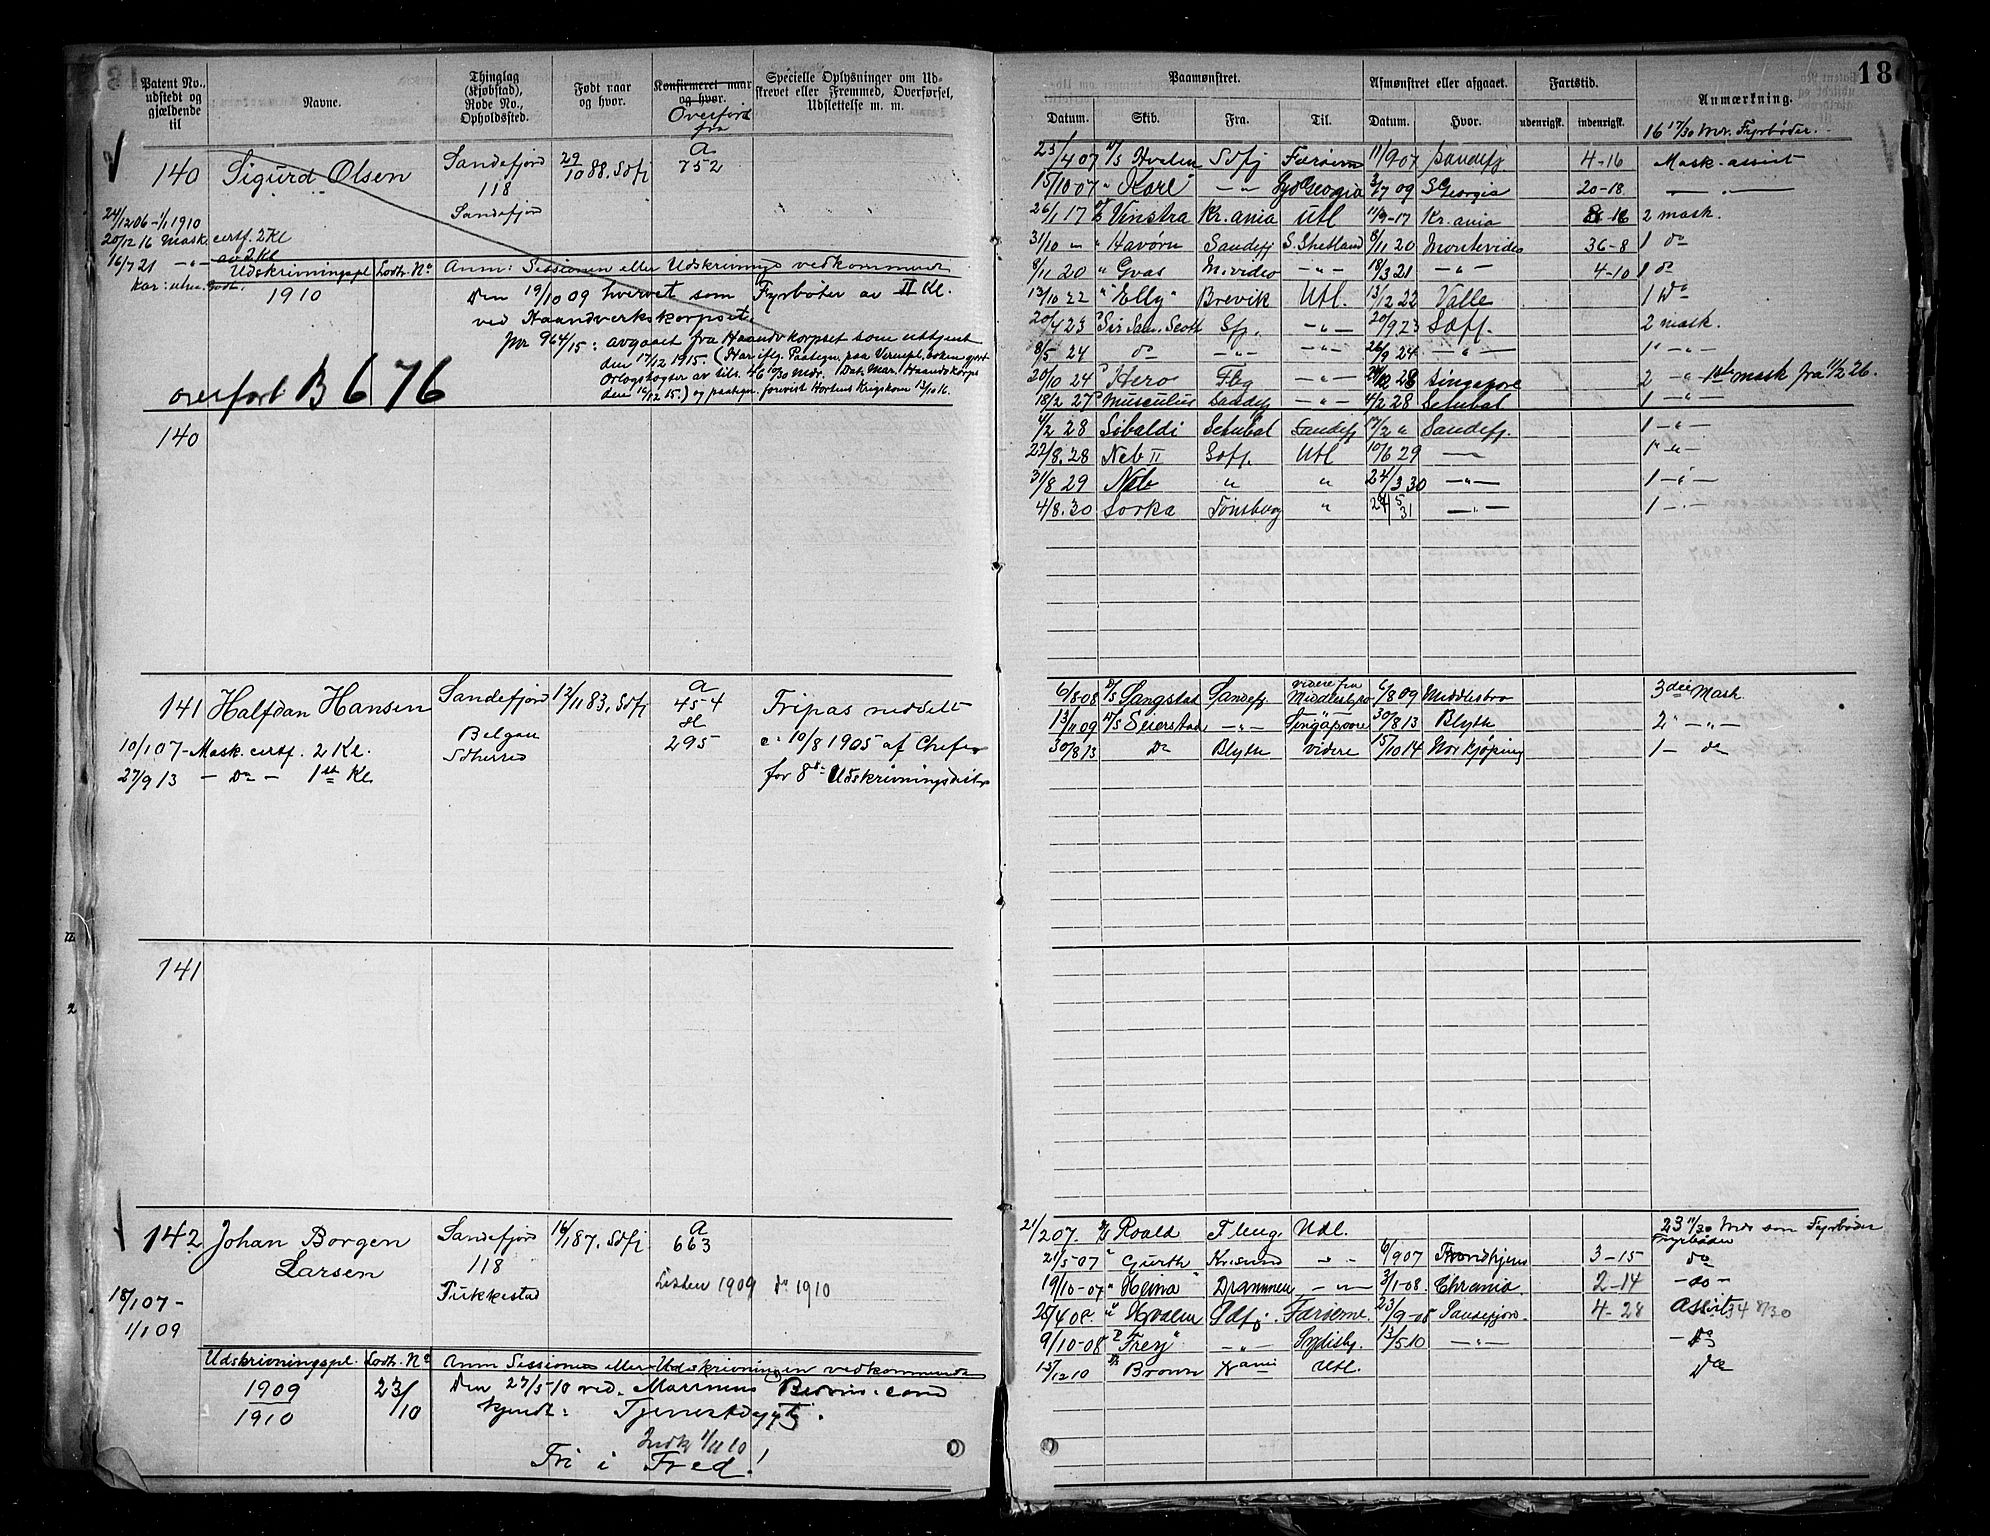 Patent No., udstedt og gjældende til
Navne.
Thinglag (Kjøbstad), Rode No., Opholdssted.
Født naar og hvor.
Konfirmeret naar og hvor.
Overført fra
Specielle Oplysninger om Udskrevet eller Fremmed, Overførsel, Udslettelse m. m.
140 Sigurd Olsen Sandefjord 29/10 88. Sdfj a 752
118
Sandefjord
24/12 06 - 1/1 1910
20/12 16 Mask. certf. 2 Kl
16/7 21 - " - av 2 Kl
Udskrivningspl. Lodtr. No Anm: Sessionen eller Udskrivnings vedkommende
1910 Den 19/10 09 hvervet som Fyrbøter av II Kl.
ved Haandverkskorpset.
Jnr 964/15: avgaaet fra Haandv korpset som uttjent
den 17/12 1915.
overført B 676
140
141 Halfdan Hansen Sandefjord 12/11 83. Sdfj a 454
295
10/1 07 - Mask. certf. 2 Kl.
27/9 13 - Do - 1ste Kl
Fripas meddelt
10/8 1905 af Chefen
for 8de Udskrivningsdistr
141
142 Johan Borgen Larsen Sandefjord 16/1 87. Sdfj a 663
118
Listen 1909 do 1910
18/1 07 -
1/1 09
Udskrivningspl. Lodtr. No Anm Sessionens eller Udskrivningen vedkommende
1909 23/10
1910
Den 27/5 10 ved Marinens
kjendt: Tjenestdygtig.
Indk 1/11 10
Fri i Fred!
18
Paamønstret.
Afmønstret eller afgaaet.
Fartstid.
Anmærkning.
Datum. Skib. Fra. Til. Datum. Hvor. udenrigsk. indenrigsk.
16 17/30 Mdr. Fyrbøder.
25/4 07 D/S Hvalen Sdfj Færøerne 11/9 07 Sandefj. 4-16 Mask. assist
15/10 07 " Karl" - " - Syd Georgia 3/7 09 S Georgia 20-18 - " -
26/1 17 D/S Vinstra Kr.ania Utl 11/9-17 Kr.ania 8-16 2 mask.
31/10 " " Havørn Sandefj S. Shetland 8/11 20 Montevideo 36-8 1 do
8/11 20 " Gvas M.video - " - 18/3 21 - " - 4-10 1 do
13/10 22 "Elly" Brevik Utl. 13/12 22 Valle 1 Do
20/4 23 " Sir Sam. Scott Sfj. - " - 20/9 23 Sdfj. 2 mask.
8/5 24 do - " - - " - 26/9 24 - " - 1 - " -
20/10 24 " Hero Fbg - " - 28 Singapore 2 - " - 1ste mask fra 11/2 26.
18/2 27 " Musculus Sandefj - " - 4/2 28 Setubal 1 - " -
4/2 28 Sibaldi Setubal Sandefj 17/2 " Sandefj. 1 - " -
22/8. 28 Neb II Sdfj. Utl 10/6 29 - 1 - " -
31/8 29 Neb " " 24/3 30 - " - 1 - " -
4/8. 30 Sorka Tønsberg " 29/5 31 - " - 1 - " -
6/8 08 D/S Sangstad Sandefj. videre fra Middlesbro 6/8 09 Middlesbro 3die Mask
13/11 09 D/S Seierstad - " - Singapore 30/8 13 Blyth 2 - " -
30/8 13 Do Blyth videre 15/10 14 Norkjøping 1 - do
21/2 07. D/S Roald Fleng. Udl. 23 11/30 Mdr som Fyrbøder
Fyrbøder
21/5-07 " Gurth Kr.sund " 6/9 07 Trondhjem 3-15 do
19/10-07 " Heima" Drammen - " - 3/1-08. Chrania 2-14 - do -
25/4 08. " Hvalen Sdfj. Færøerne 23/9-08 Sandefjord. 4-28 Assist 34 8/30
9/10-08 " Frey" - " - 13/5 10 - " - - Do
15/12 10 D/S Brown Utl. Do